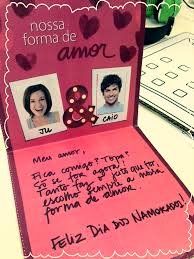 nossa
forma de
amor
JU
&
CAIO
Meu amor,
Fica comigo? Topa?
Só se for agora!
Tanto faz o jeito que for,
escolho sempre a nossa
forma de amor.
Feliz Dia dos Namorados!